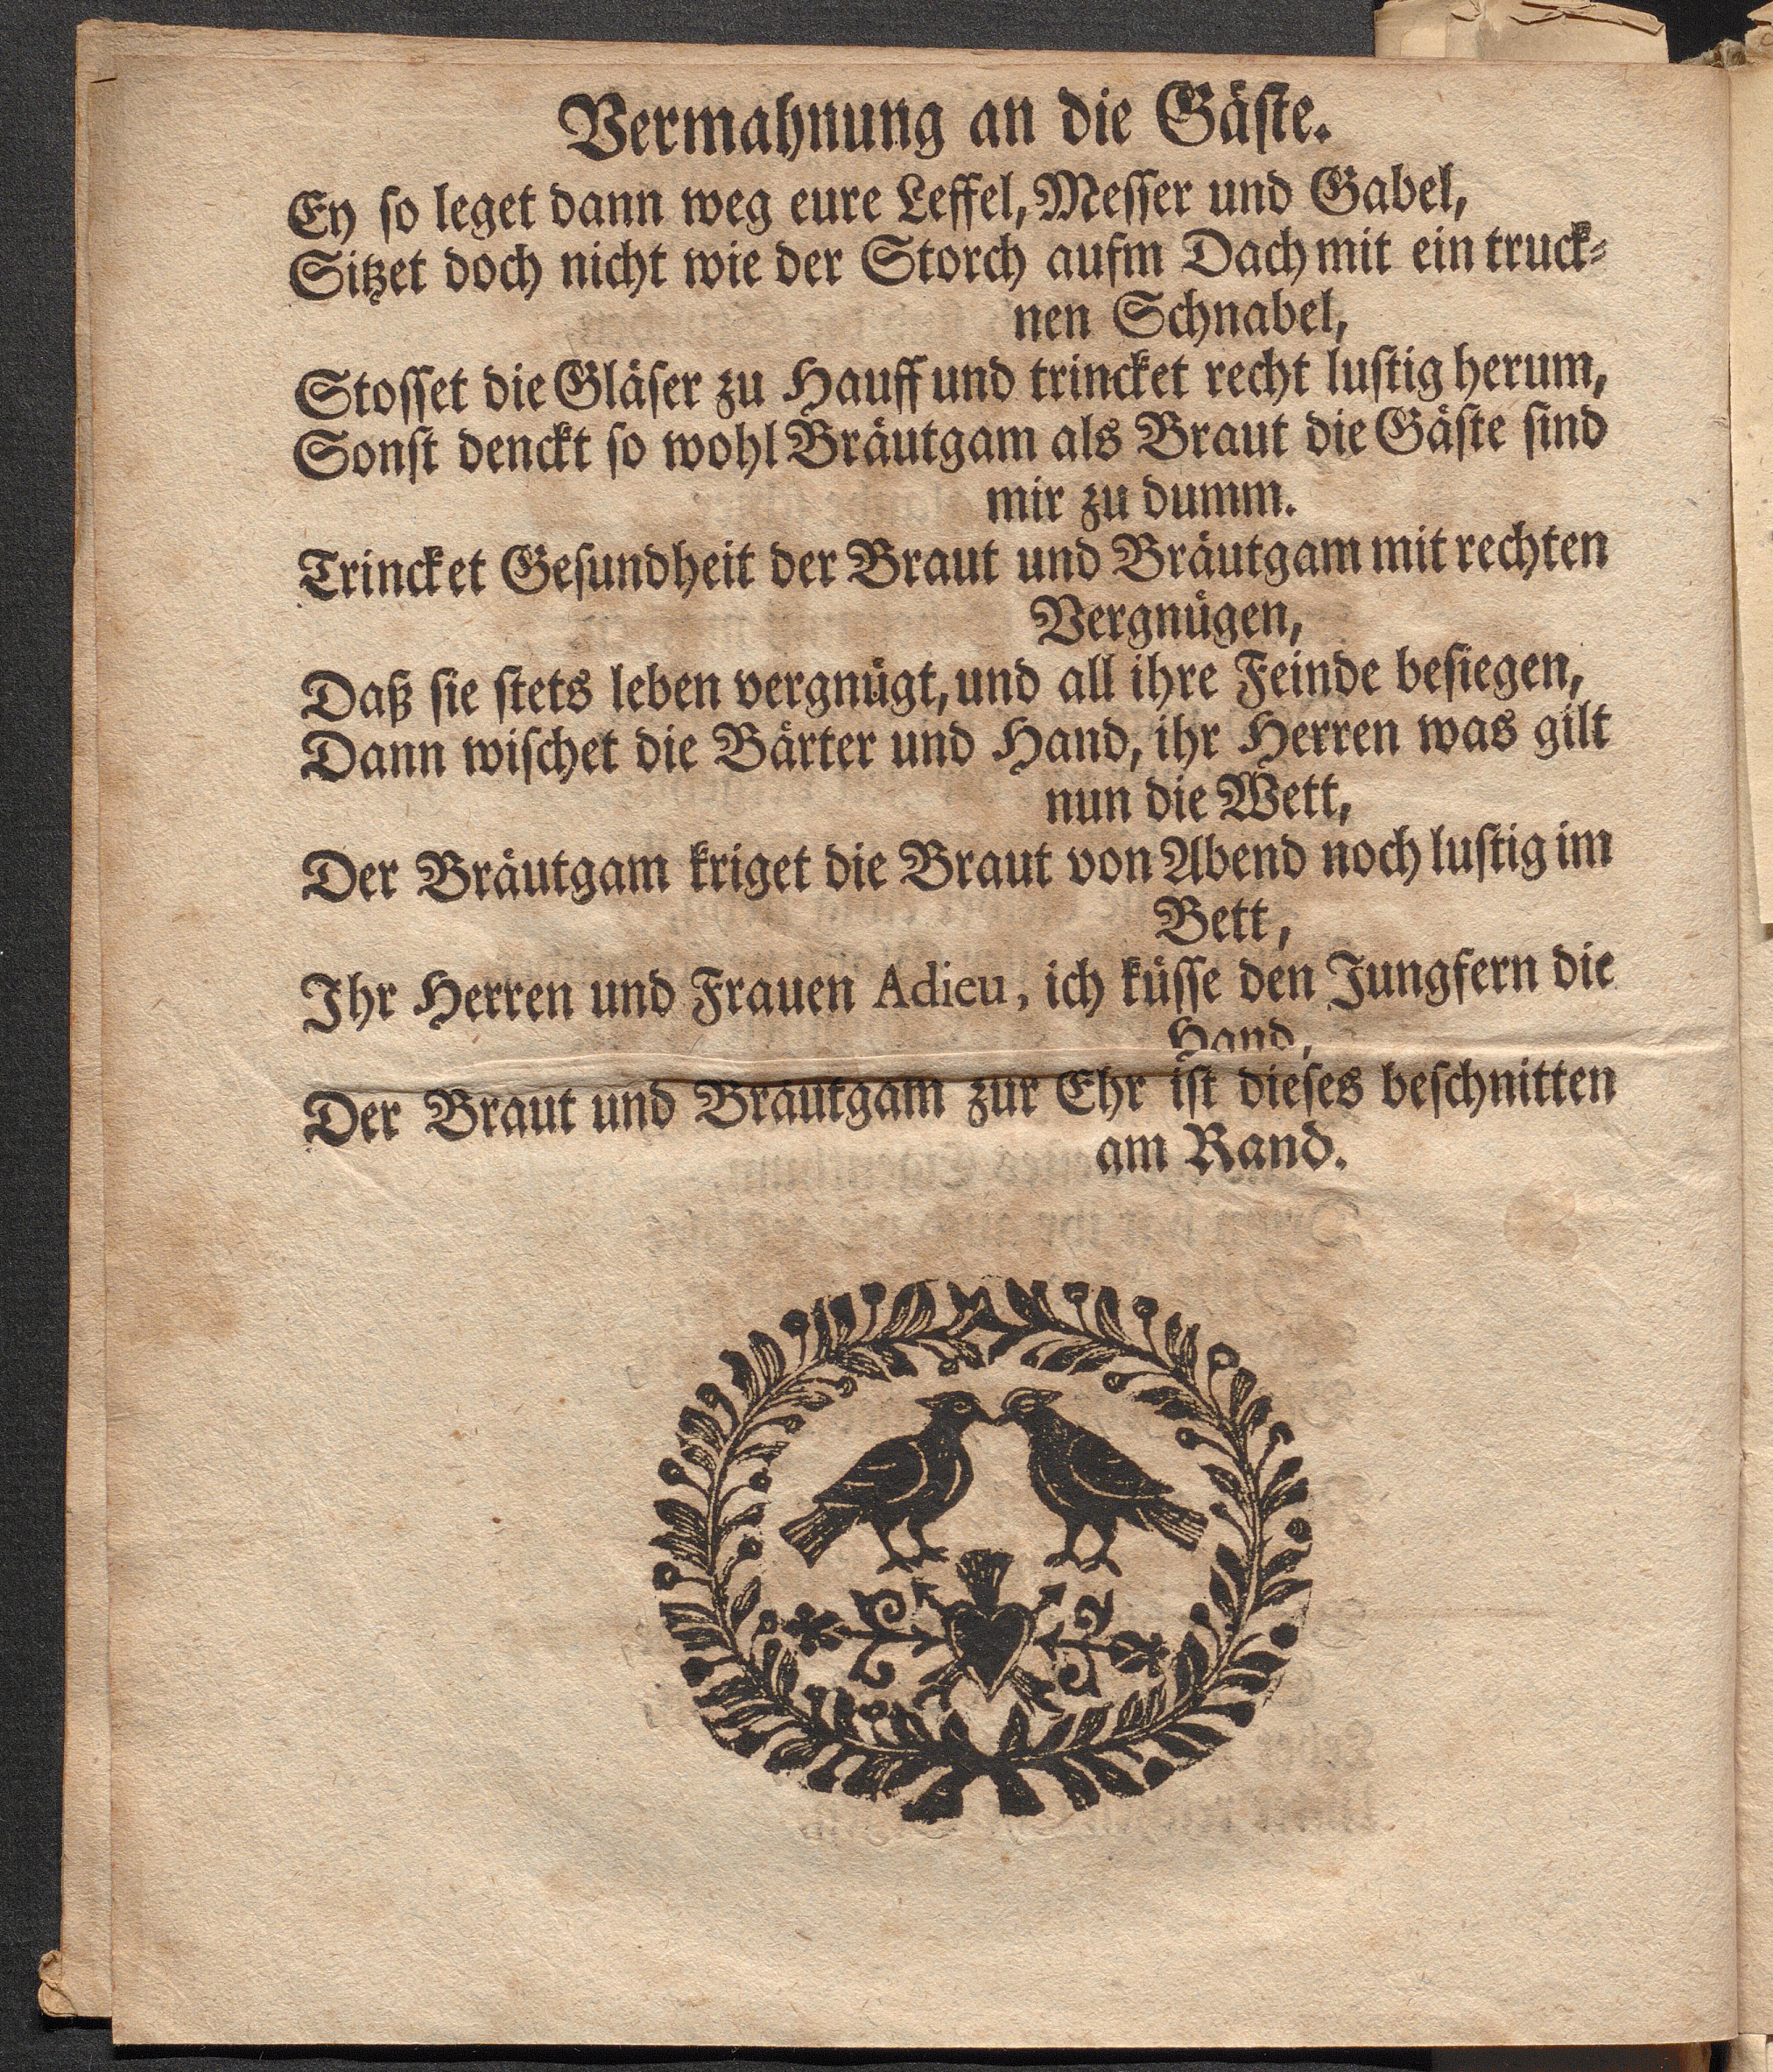 Vermahnung an die Gäste.
Ey so leget dann weg eure Leffel, Messer und Gabel,
Sitzet doch nicht wie der Storch aufm Dach mit ein truck-
nen Schnabel,
Stosset die Gläser zu Hauff und trincket recht lustig herum,
Sonst denckt so wohl Bräutgam als Braut die Gäste sind
mir zu dumm.
Trincket Gesundheit der Braut und Bräutgam mit rechten
Vergnügen,
Daß sie stets leben vergnügt, und all ihre Feinde besiegen,
Dann wischet die Bärter und Hand, ihr Herren was gilt
nun die Wett,
Der Bräutgam kriget die Braut von Abend noch lustig im
Bett,
Ihr Herren und Frauen Adieu, ich küsse den Jungfern die
Hand,
Der Braut und Bräutgam zur Ehr ist dieses beschnitten
am Rand.